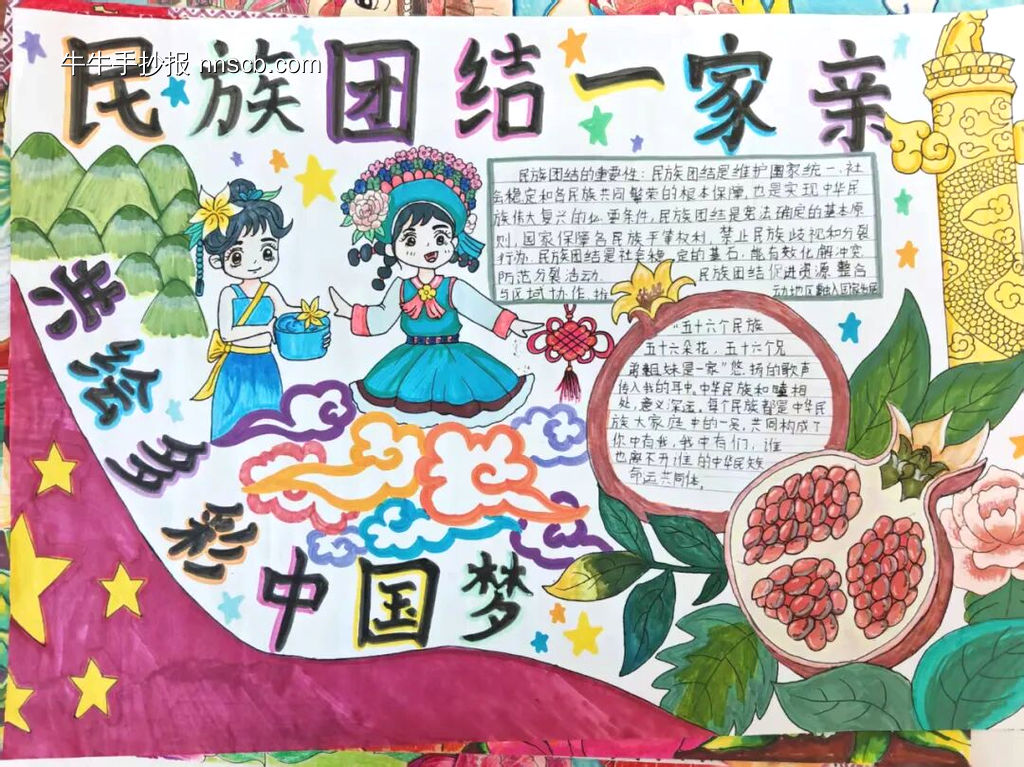 民族团结一家亲
牛牛手抄报 nnscb.com
民族团结的重要性：民族团结是维护国家统一、社
会稳定和各民族共同繁荣的根本保障，也是实现中华民
族伟大复兴的必要条件，民族团结是宪法确定的基本原
则，国家保障各民族平等权利，禁止民族歧视和分裂
行为，民族团结是社会稳定的基石，能有效化解冲突，
防范分裂活动。 民族团结促进资源整合
与区域协作，推 动地区融入国家发展
"五十六个民族
五十六朵花，五十六个兄
弟姐妹是一家"悠扬的歌声
传入我的耳中，中华民族和睦相
处，意义深远。每个民族都是中华民
族大家庭中的一员，共同构成了
你中有我，我中有们，谁
也离不开谁的中华民族
命运共同体。
共绘多彩
中国梦